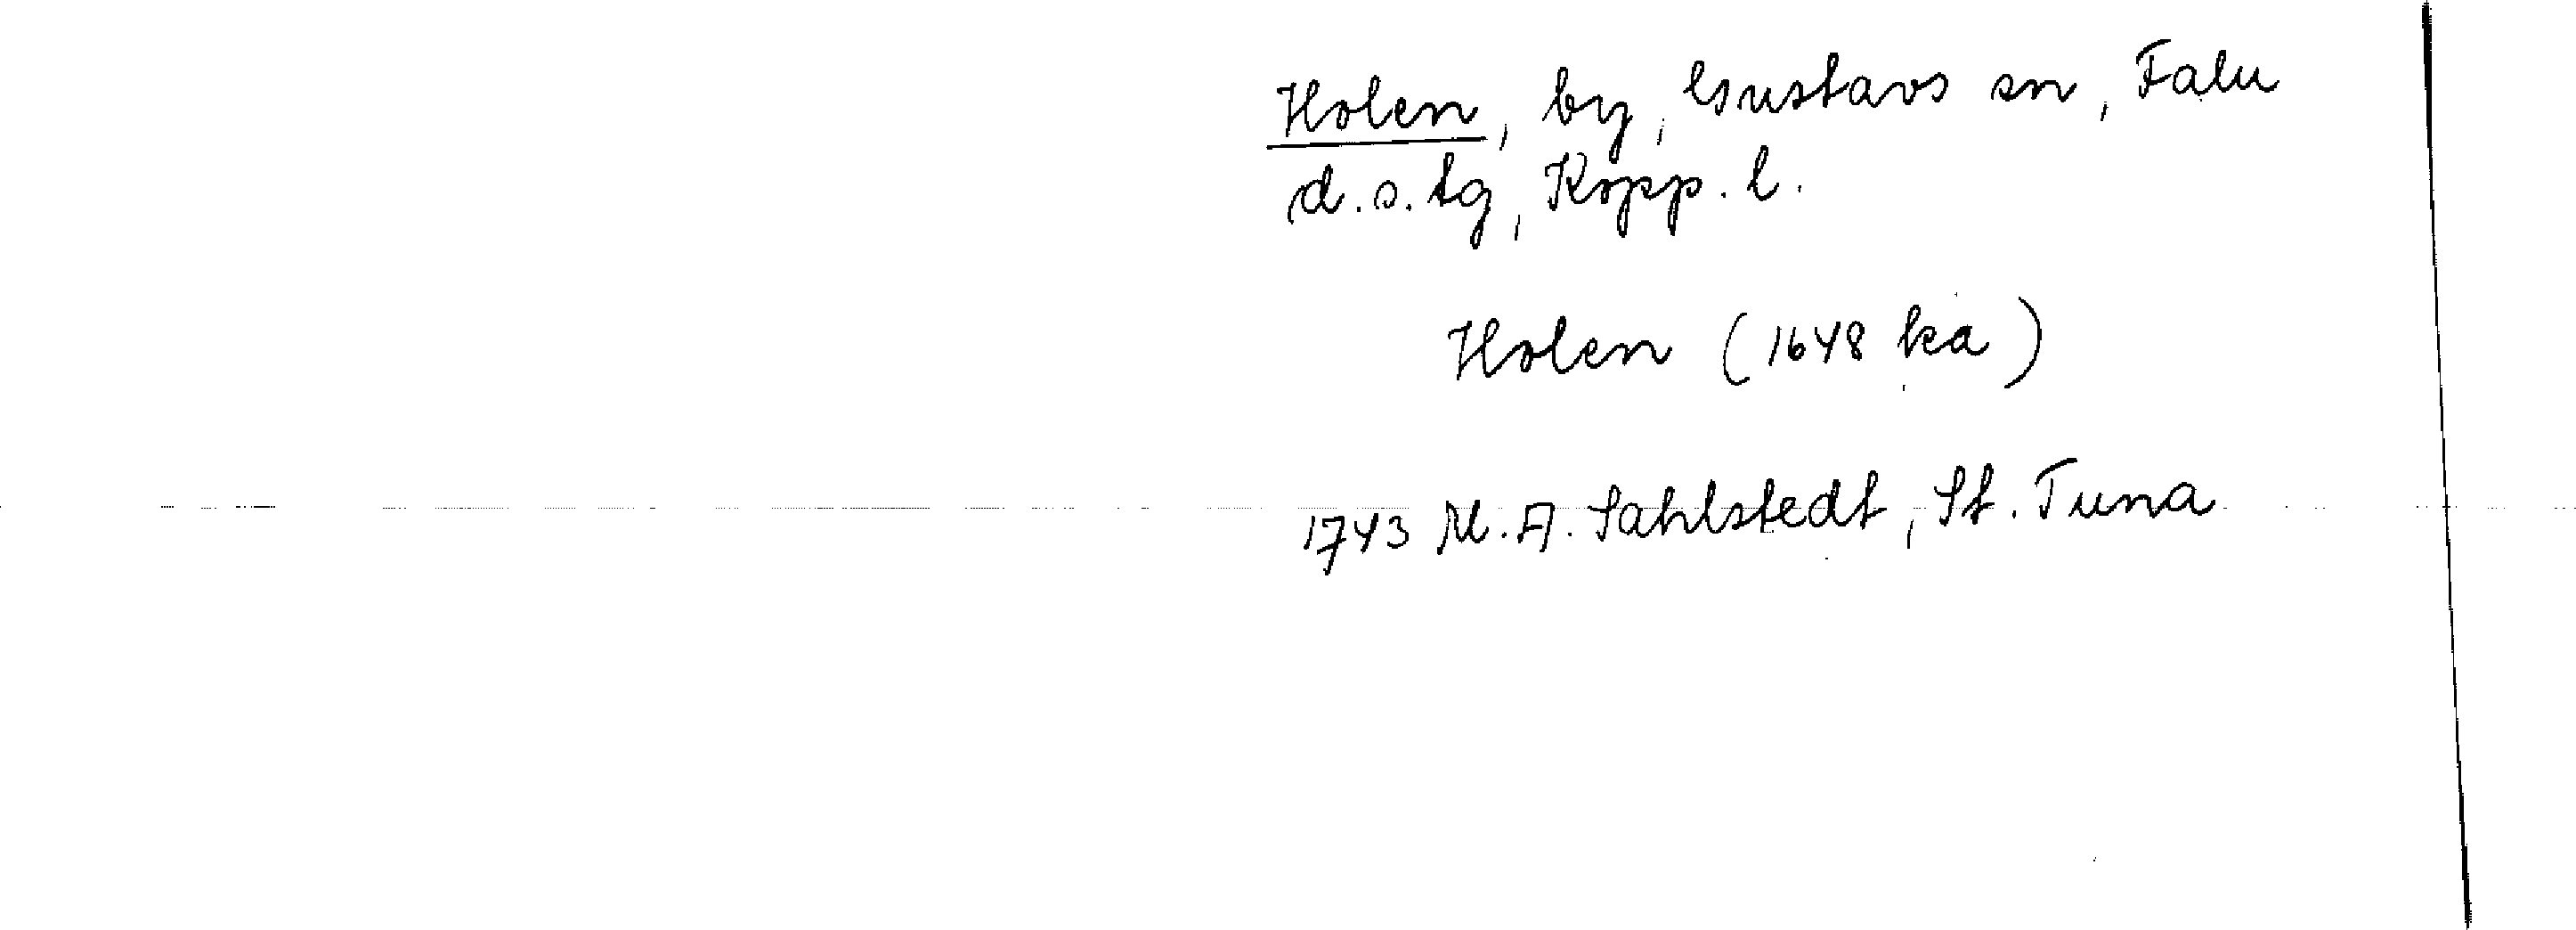 Holen, by, Gustavs sn, Falu
d.s. tg, Kopp. l.
Holen (1648 ka)
1743 M. A. Sahlstedt, St. Tuna